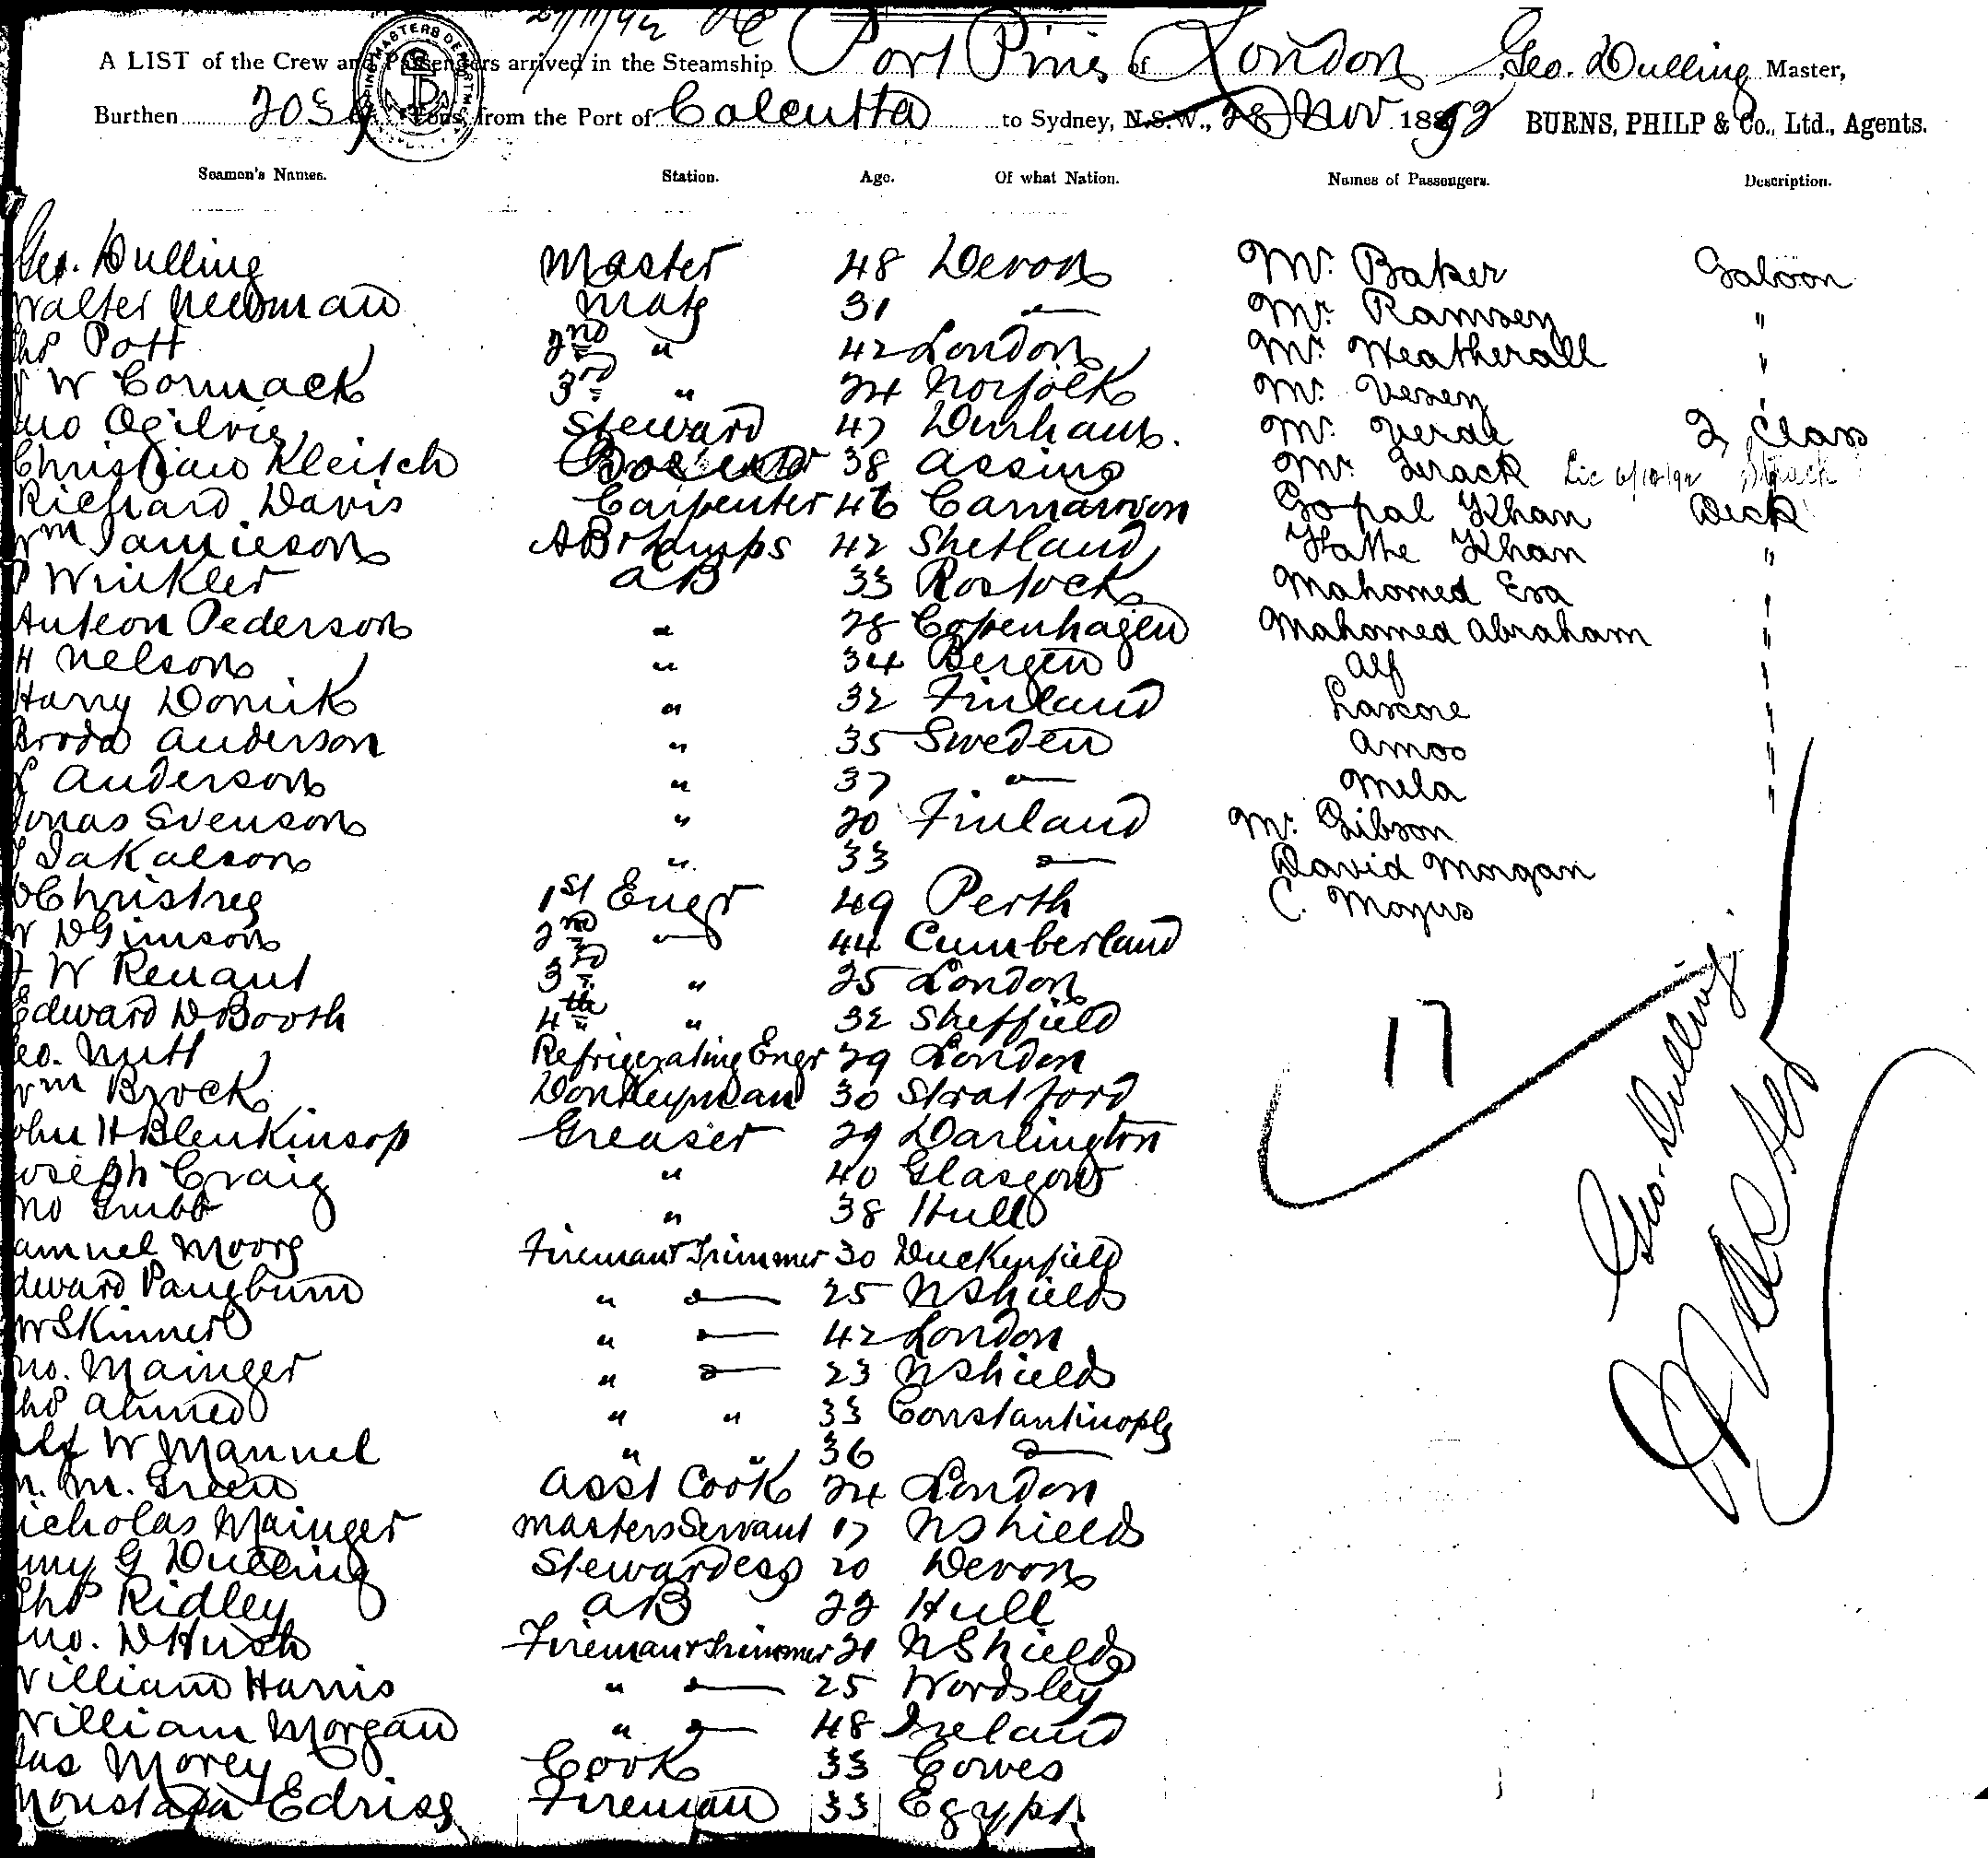 21/11/92
A LIST of the Crew and Passengers arrived in the Steamship Port Pirie of London Geo. Dulling Master,
Burthen Tons, from the Port of Calcutta to Sydney, N.S.W., 28 Nov 1892 BURNS, PHILP & Co., Ltd., Agents.
Seamen's Names. Station. Age. Of what Nation. Names of Passengers. Description.
Geo. Dulling Master 48 Devon Mr. Baker Saloon
Walter Newman Mate 31 Mr. Ramsey "
Thos Pott 2nd " 42 London Mr. Weatherall "
W Cormack 3rd " 24 Norfolk Mr. Vesey "
Jno Ogilvie Steward 47 Durham. Mr. Verde 2 Class
Christian Kleitch 38 Assing Mr. "
Richard Davis Carpenter 46 Carnarvon Gopal Khan Deck
Wm Jamieson AB & Lamps 42 Shetland Hatte Khan "
P Winkler AB 33 Rostock Mahomed Esa "
Anteon Pederson " 28 Copenhagen Mahomed Abraham "
H Nelson " 34 Bergen Alf "
Harry Domik " 32 Finland Lascore "
Broda Anderson " 35 Sweden Amoo "
Anderson " 37 Mela "
Jonas Svenson " 20 Finland Mr. Gibson
Jakalson " 33 David Morgan
D Christie 1st Engr 49 Perth C. Moyes
W D Gimson 2nd 44 Cumberland
W Renant 3rd " 25 London
Edward D Booth 4th " 32 Sheffield
Geo. Nutt Refrigerating Engr 29 London
Wm Brock Donkeyman 30 Stratford
John H Blenkinsop Greaser 29 Darlington
Joseph Craig " 40 Glasgow
Jno Grubb " 38 Hull
Samuel Moore Fireman & Trimmer 30 Duckenfield
Edward Pangburn " 25 N Shields
W Skinner " 42 London
Jno. Mainger " 23 N Shields
Thos Ahmed " " 33 Constantinople
Alf W Mannel " " 36
M. Green Asst Cook 24 London
Nicholas Mainger Masters Servant 17 N Shields
Amy G Dulling Stewardess 20 Devon
Thos Ridley AB 22 Hull
Jno. D Hush Fireman & Trimmer 21 N Shields
William Harris " 25 Wordsley
William Morgan " 48 Ireland
Jas Morey Cook 33 Cowes
Moustafa Edriss Fireman 33 Egypt.
17
Geo. Dulling
Master